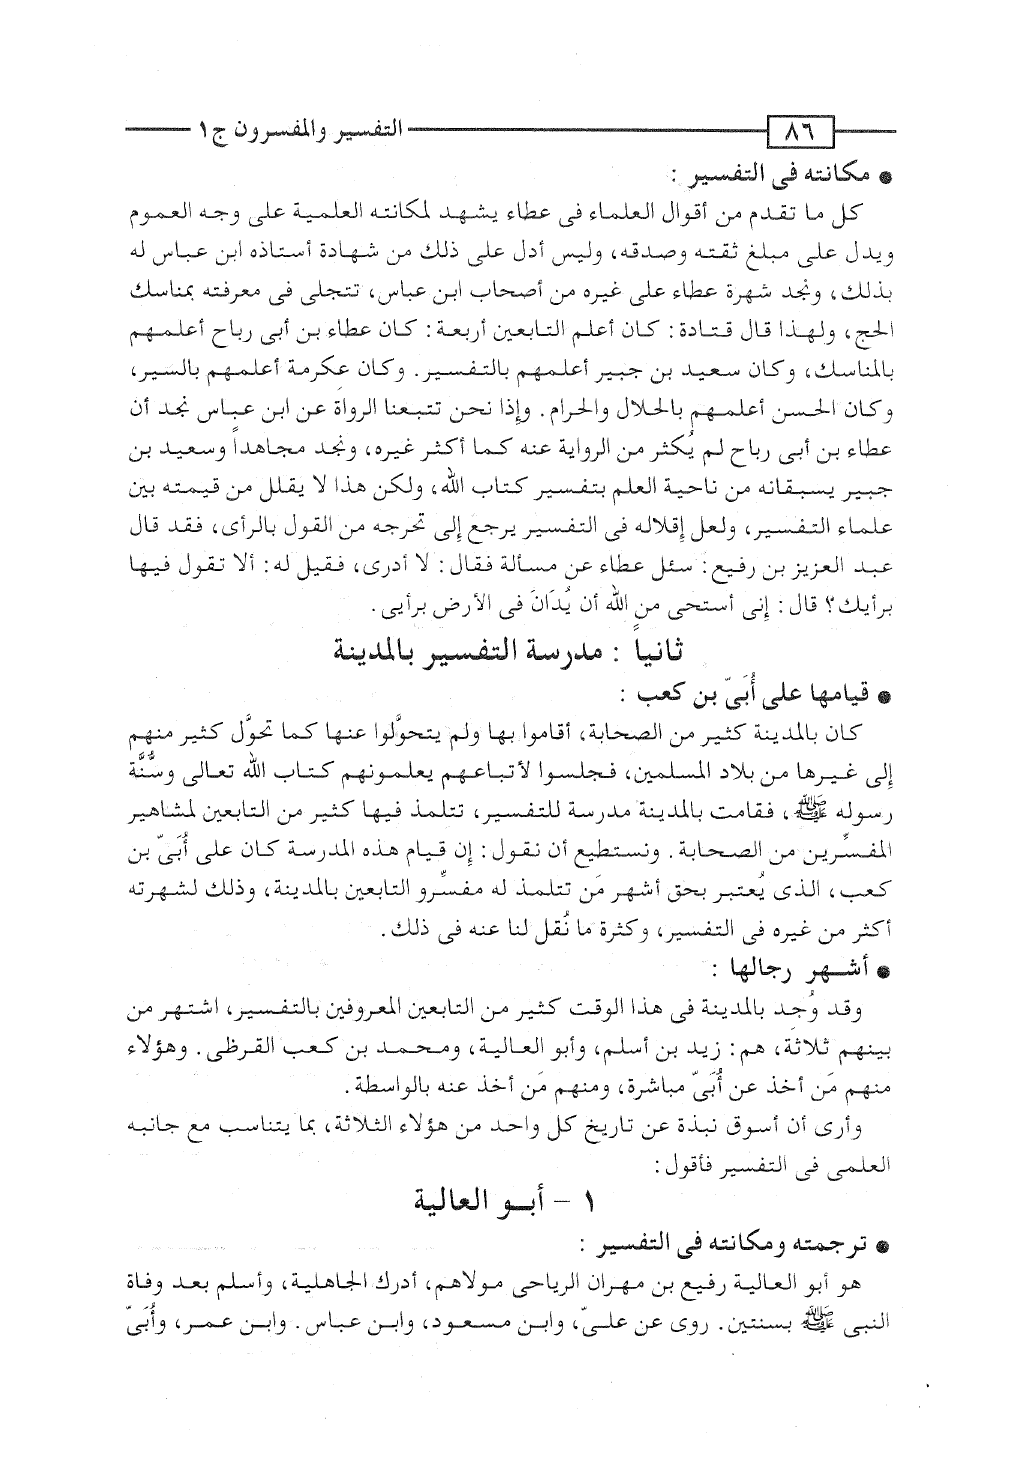 ٨٦ التفسير والمفسرون ج١
● مكانته فى التفسير :
كل ما تقدم من أقوال العلماء فى عطاء يشهد لمكانته العلمية على وجه العموم
ويدل على مبلغ ثقته وصدقه، وليس أدل على ذلك من شهادة أستاذه ابن عباس له
بذلك، ونجد شهرة عطاء على غيره من أصحاب ابن عباس، تتجلى فى معرفته بمناسك
الحج، ولهذا قال قتادة: كان أعلم التابعين أربعة: كان عطاء بن أبى رباح أعلمهم
بالمناسك، وكان سعيد بن جبير أعلمهم بالتفسير. وكان عكرمة أعلمهم بالسير،
وكان الحسن أعلمهم بالحلال والحرام. وإذا نحن تتبعنا الرواة عن ابن عباس نجد أن
عطاء بن أبى رباح لم يُكثر من الرواية عنه كما أكثر غيره، ونجد مجاهداً وسعيد بن
جبير يسبقانه من ناحية العلم بتفسير كتاب الله، ولكن هذا لا يقلل من قيمته بين
علماء التفسير، ولعل إقلاله فى التفسير يرجع إلى تحرجه من القول بالرأى، فقد قال
عبد العزيز بن رفيع: سئل عطاء عن مسألة فقال: لا أدرى، فقيل له: ألا تقول فيها
برأيك؟ قال: إنى أستحى من الله أن يُدَانَ فى الأرض برأيى.
ثانياً : مدرسة التفسير بالمدينة
● قيامها على أُبَىّ بن كعب :
كان بالمدينة كثير من الصحابة، أقاموا بها ولم يتحوَّلوا عنها كما تحوَّل كثير منهم
إلى غيرها من بلاد المسلمين، فجلسوا لأتباعهم يعلمونهم كتاب الله تعالى وسُّنَّة
رسوله ﷺ، فقامت بالمدينة مدرسة للتفسير، تتلمذ فيها كثير من التابعين لمشاهير
المفسِّرين من الصحابة. ونستطيع أن نقول: إن قيام هذه المدرسة كان على أُبَىّ بن
كعب، الذى يُعتبر بحق أشهر مَن تتلمذ له مفسِّرو التابعين بالمدينة، وذلك لشهرته
أكثر من غيره فى التفسير، وكثرة ما نُقل لنا عنه فى ذلك.
● أشهر رجالها :
وقد وُجِد بالمدينة فى هذا الوقت كثير من التابعين المعروفين بالتفسير، اشتهر من
بينهم ثلاثة، هم: زيد بن أسلم، وأبو العالية، ومحمد بن كعب القرظى. وهؤلاء
منهم مَن أخذ عن أُبَىّ مباشرة، ومنهم مَن أخذ عنه بالواسطة.
وأرى أن أسوق نبذة عن تاريخ كل واحد من هؤلاء الثلاثة، بما يتناسب مع جانبه
العلمى فى التفسير فأقول:
١ - أبو العالية
● ترجمته ومكانته فى التفسير :
هو أبو العالية رفيع بن مهران الرياحى مولاهم، أدرك الجاهلية، وأسلم بعد وفاة
النبى ﷺ بسنتين. روى عن علىّ، وابن مسعود، وابن عباس. وابن عمر، وأُبَىّ